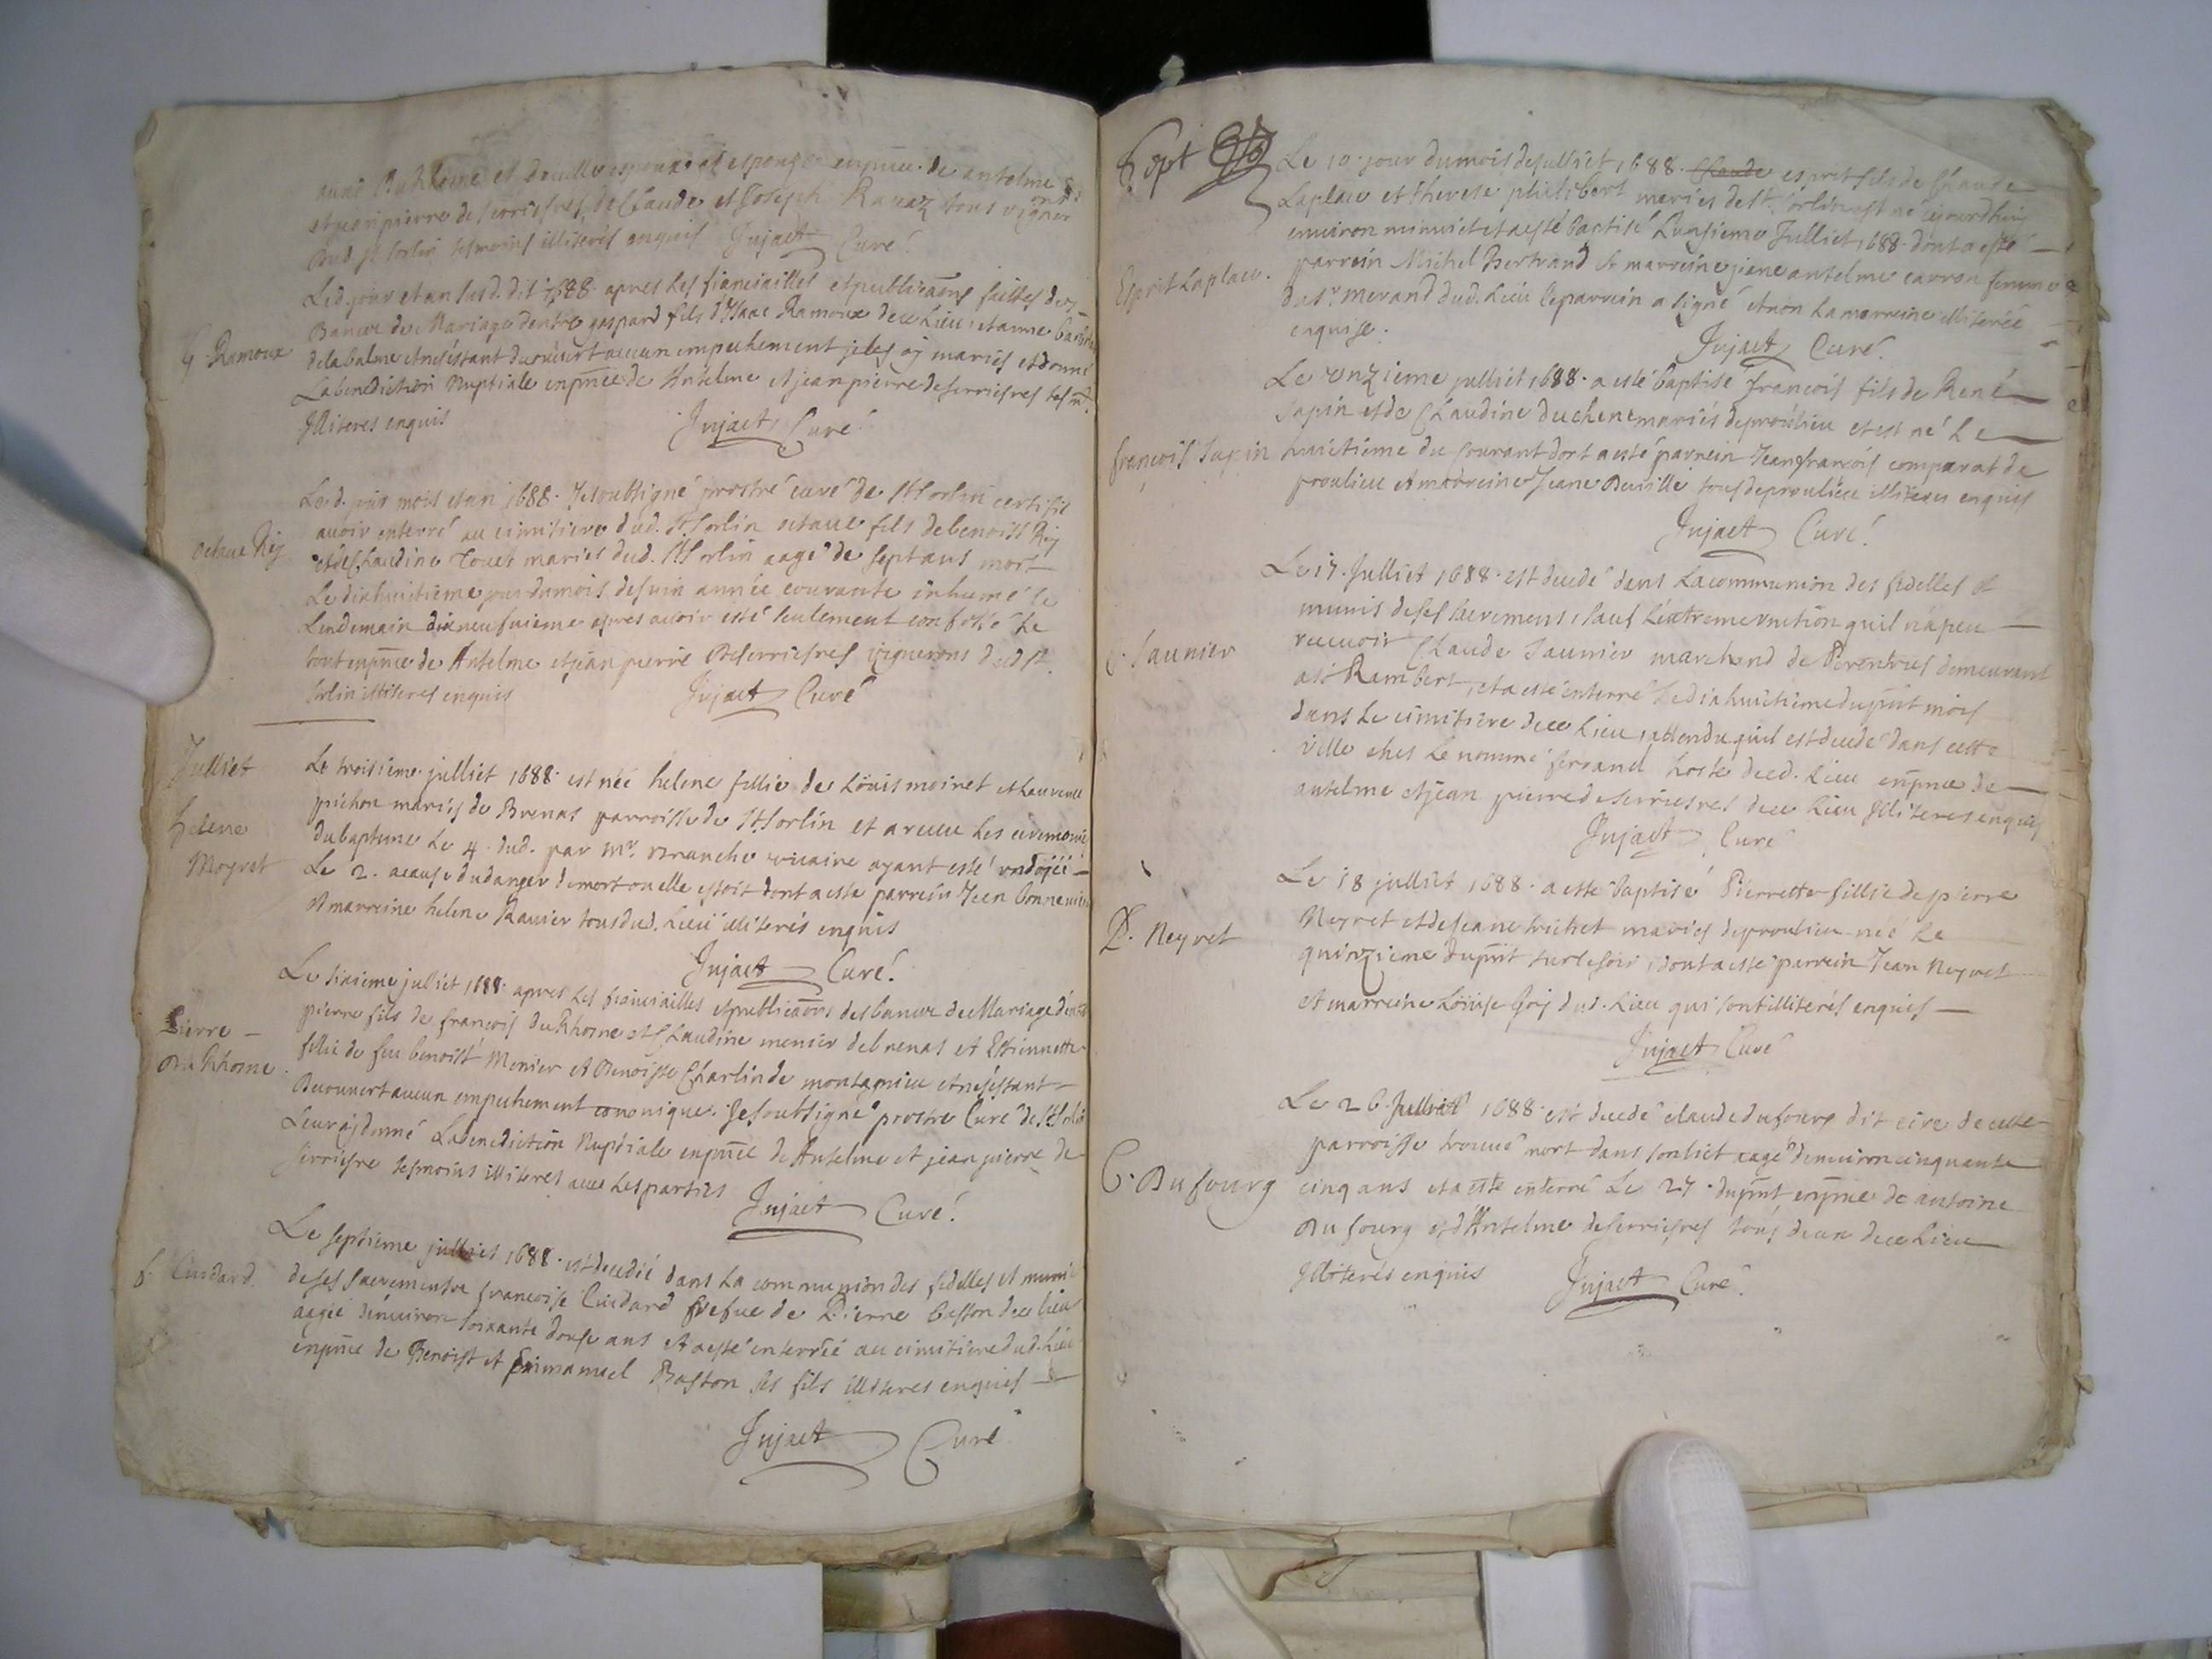 et jean pierre de serriesres, de Claude et Joseph Ravaz tous vigner
Dud. st Sorlin tesmoins illiterés enquis Jujaet Curé
Led. jour et an susd. dit 1688. apres les fiancailles et publicãons faittes des
Bancez de Mariage dentre gaspard fils d'Isaac Ramoux de ce Lieu et anne
G. Ramoux
delabalme et nesestant decouvert aucun empechement je les aj mariés et donné
La benediction Nuptiale enpñce de Antelme et jean pierre deserriesres tesmt.
Illiteres enquis
Jujaet Curé
Led. jour mois et an 1688. Je soubsigné prostre curé de St Sorlin certifie
avoir enterré au cimitiere dud. St Sorlin octave fils de benoist Rej
octave Rej
et de Claudine Touet mariés dud. St Sorlin aagé de sept ans mort
Le dixhuictieme jour du mois de juin année courante inhumé le
Lendemain dixneufvieme apres avoir esté seulement confessé Le
tout enpñce de Antelme et jean pierre Deserriesres vignerons dud st.
sorlin illiteres enquis Jujaet Curé
Julliet
Le troisieme julliet 1688. est née helene fillie de Louis moiret et Laurence
pichon mariés de Brenas parroisse de St Sorlin et a receu les ceremonie
helene
Moyret
du bapteme le 4. dud. par Mr. branche vicaire ayant esté ondojéé
Le 2. acause du danger de mort ou elle estoit dont a este parrein Jean
et marreine helene Ravier tous dud. Lieu illiterés enquis
Jujaet Curé.
Le sixieme julliet 1688. apres les fiancailles et publicãons des bancz de Mariage dentre
pierre fils de francois du Rhosne et Claudine menier de brenas et Estiennette
Pierre
Du Rhosne
fillie de feu benoist Monier et Benoiste Charlin de montagnieu et nesestant
Decouvert aucun empechement cononique. Je soubsigné prostre Curé de St Sorlin
Leur aj donné La benediction Nuptiale enpñce de Antelme et jean pierre de
serriesre tesmoins illiteres avec les parties
Jujaet Curé.
Le septieme julliet 1688. est decedéé dans La communion des fidelles et munie
f. Cuidard
de ses sacrementx francoise Cuidard vefue de Pierre baston de ce lieu
aagéé denviron soixante douse ans et a esté enterréé au cimitiere dud. Lieu
enpñce de Benoist et Emmanuel Baston ses fils illiteres enquis
Jujaet Curé
Sept
Le 10. jour du mois de julliet 1688. Claude esprit fils de Claude
Laplace et therese philibert mariés de St. sorlin est né aujourdhuy
environ minuict et a esté baptisé L'unzieme Julliet 1688. dont a esté
Esprit Laplace.
parrein Michel Bertrand et marreine jeane antelme carron femme
du sr. morand dud. Lieu le parrein a signé et non la marreine illiteréé
enquise.
Jujaet Curé.
Le unzieme julliet 1688. a esté baptisé francois fils de René
sapin et de Claudine duchene mariés de proulieu et est né Le
francois sapin
huictieme du courant dont a esté parrein Jean francois comparat de
proulieu et marreine Jeane Deville tous de proulieu illiteres enquis
Jujaet Curé.
Le 17. Julliet 1688. est decedé dans La communion des fidelles et
munis de ses sacremens, sauf L'extreme unction quil n'a peu
C. Saunier
recevoir Claude Saunier marchend de demeurant
a st Rambert, et a este enterré Le dixhuictieme du pñt mois
dans Le cimitiere de ce Lieu, attendu quil est decedé dans cette
ville chés Le nommé ferrand hoste dud. Lieu enpñce de
antelme et jean pierre deserriesres de ce Lieu Illiteres enquis
Jujaet Curé
Le 18 julliet 1688. a este baptisé Pierrette fillie de pierre
P. Neyret
Neyret et de Jeane trichet mariés de proulieu néé Le
quinzieme du pñt sur le soir, dont a esté parrein Jean Neyret
et marreine Louise Goj dud. Lieu qui sont illiterés enquis
Jujaet Curé
Le 26. Julliet 1688. est decedé claude dufourg dit cire de cette
parroisse trouvé mort dans son lict aagé denviron cinquante
C. Dufourg
cinq ans et a esté enterré Le 27. du pñt, enpñce de antoine
Dufourg et d'Antelme deserriesres tous deux de ce Lieu
Illiterés enquis Jujaet Curé.